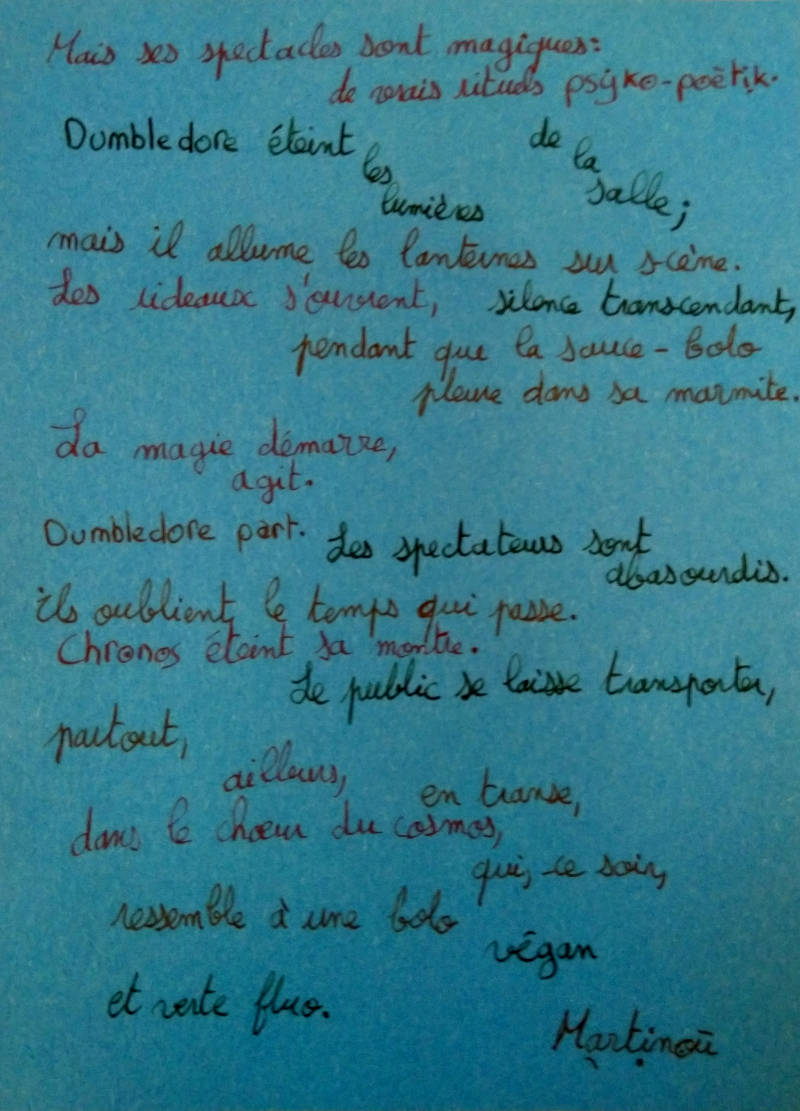 Mais ses spectacles sont magiques:
de vrais rituels psÿko-poëtik.
Dumbledore éteint les lumières de la salle;
mais il allume les lanternes sur scène.
Les rideaux s'ouvrent, silence transcendant,
pendant que la sauce-bolo
pleure dans sa marmite.
La magie démarre,
agit.
Dumbledore part. Les spectateurs sont
abasourdis.
ils oublient le temps qui passe.
Chronos éteint sa montre.
Le public se laisse transporter,
partout,
ailleurs,
en transe,
dans le chœur du cosmos,
qui, ce soir,
ressemble à une bolo
végan
et verte fluo.
Martinoü